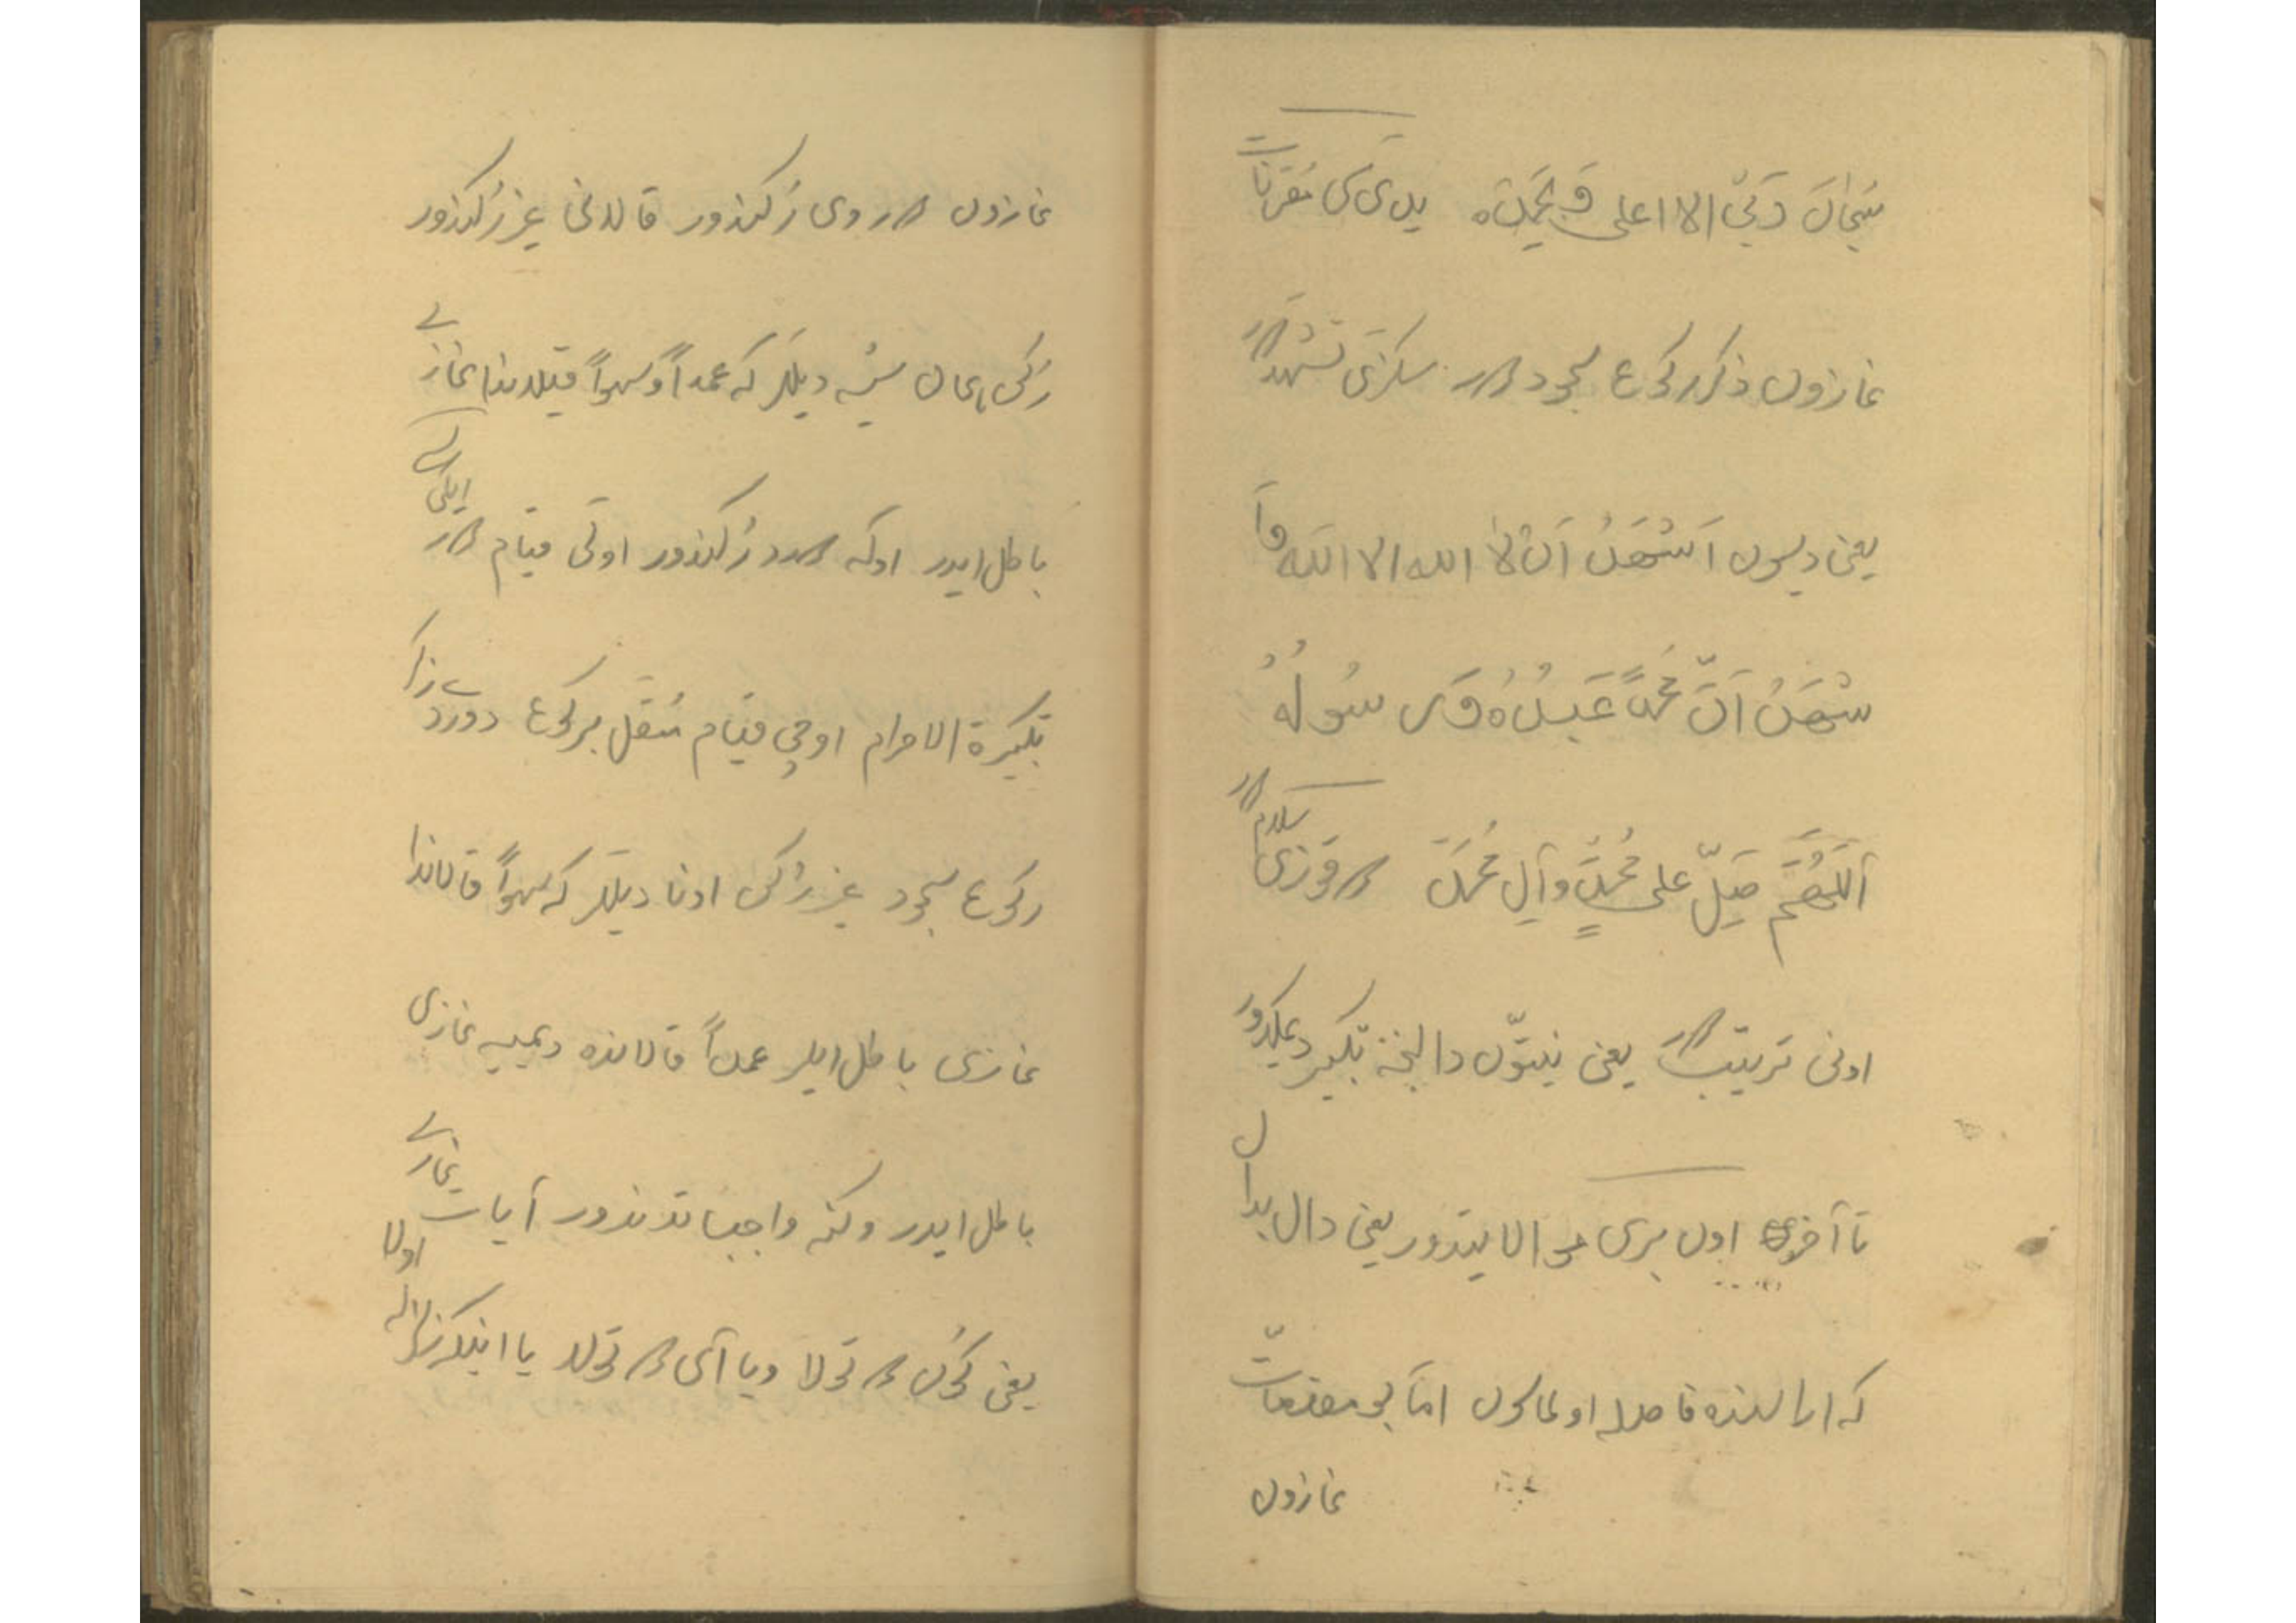 سُبحانَ رَبّیَ الا اعلی وَ بِحَمدِه یدی سی مُقرناتِ
نمازون ذکر رکوع سجوددر سکزی تَشهّددر
یعنی دیسون اَشْهَدُ اَنْ لا الله الا الله وَاَ
شْهَدُ اَنَّ مُحمّداً عَبدُهُ وَرَسُولُهُ
اَللّهُمَّ صَلِّ علی مُحمّدٍ وَآلِ مُحَمَّد دوقوزی سلامدر
اونی ترتیبدر یعنی نیتّون دالیخه تکبیر دیملکدور
تا آخره اول بری موالایتدور یعنی دال بدال
که ارالرنده فاصله اولماسون امّا بو مقدّمات
نمازون
نمازون دردوی رُکندور قالانی غیر رُکندور
رُکن ایمان شیئه دیللر که عمداً وسهواً قیلدیندا نمازے
باطل ایدر اوکه دردد رُکندور اوّلی قیام در ایکی
تکبیرة الاحرام اوچی قیام مُتّصل برکوع دورد
رکوع سجود غیر رُکن اونا دیللر که سهواً قالاندا
نمازی باطل ایلمز عمداً قالانده دیمیه نمازی
باطل ایدر وکنه واجباتدندور آیات نمازے
یعنی گون در توتولا ویا آی در توتولا یا اینکه زلزله اولا